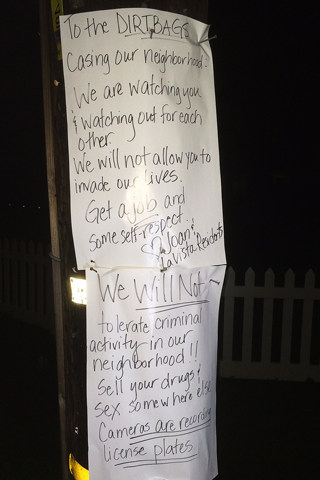 To the DIRTBAGS
Casing our neighborhood:
We are watching you
& watching out for each
other.
We will not allow you to
invade our lives.
Get a job and
some self-respect.
Joan &
LaVista Residents
We Will Not~
tolerate criminal
activity in our
neighborhood!!
Sell your drugs &
sex somewhere else
Cameras are recording
license plates